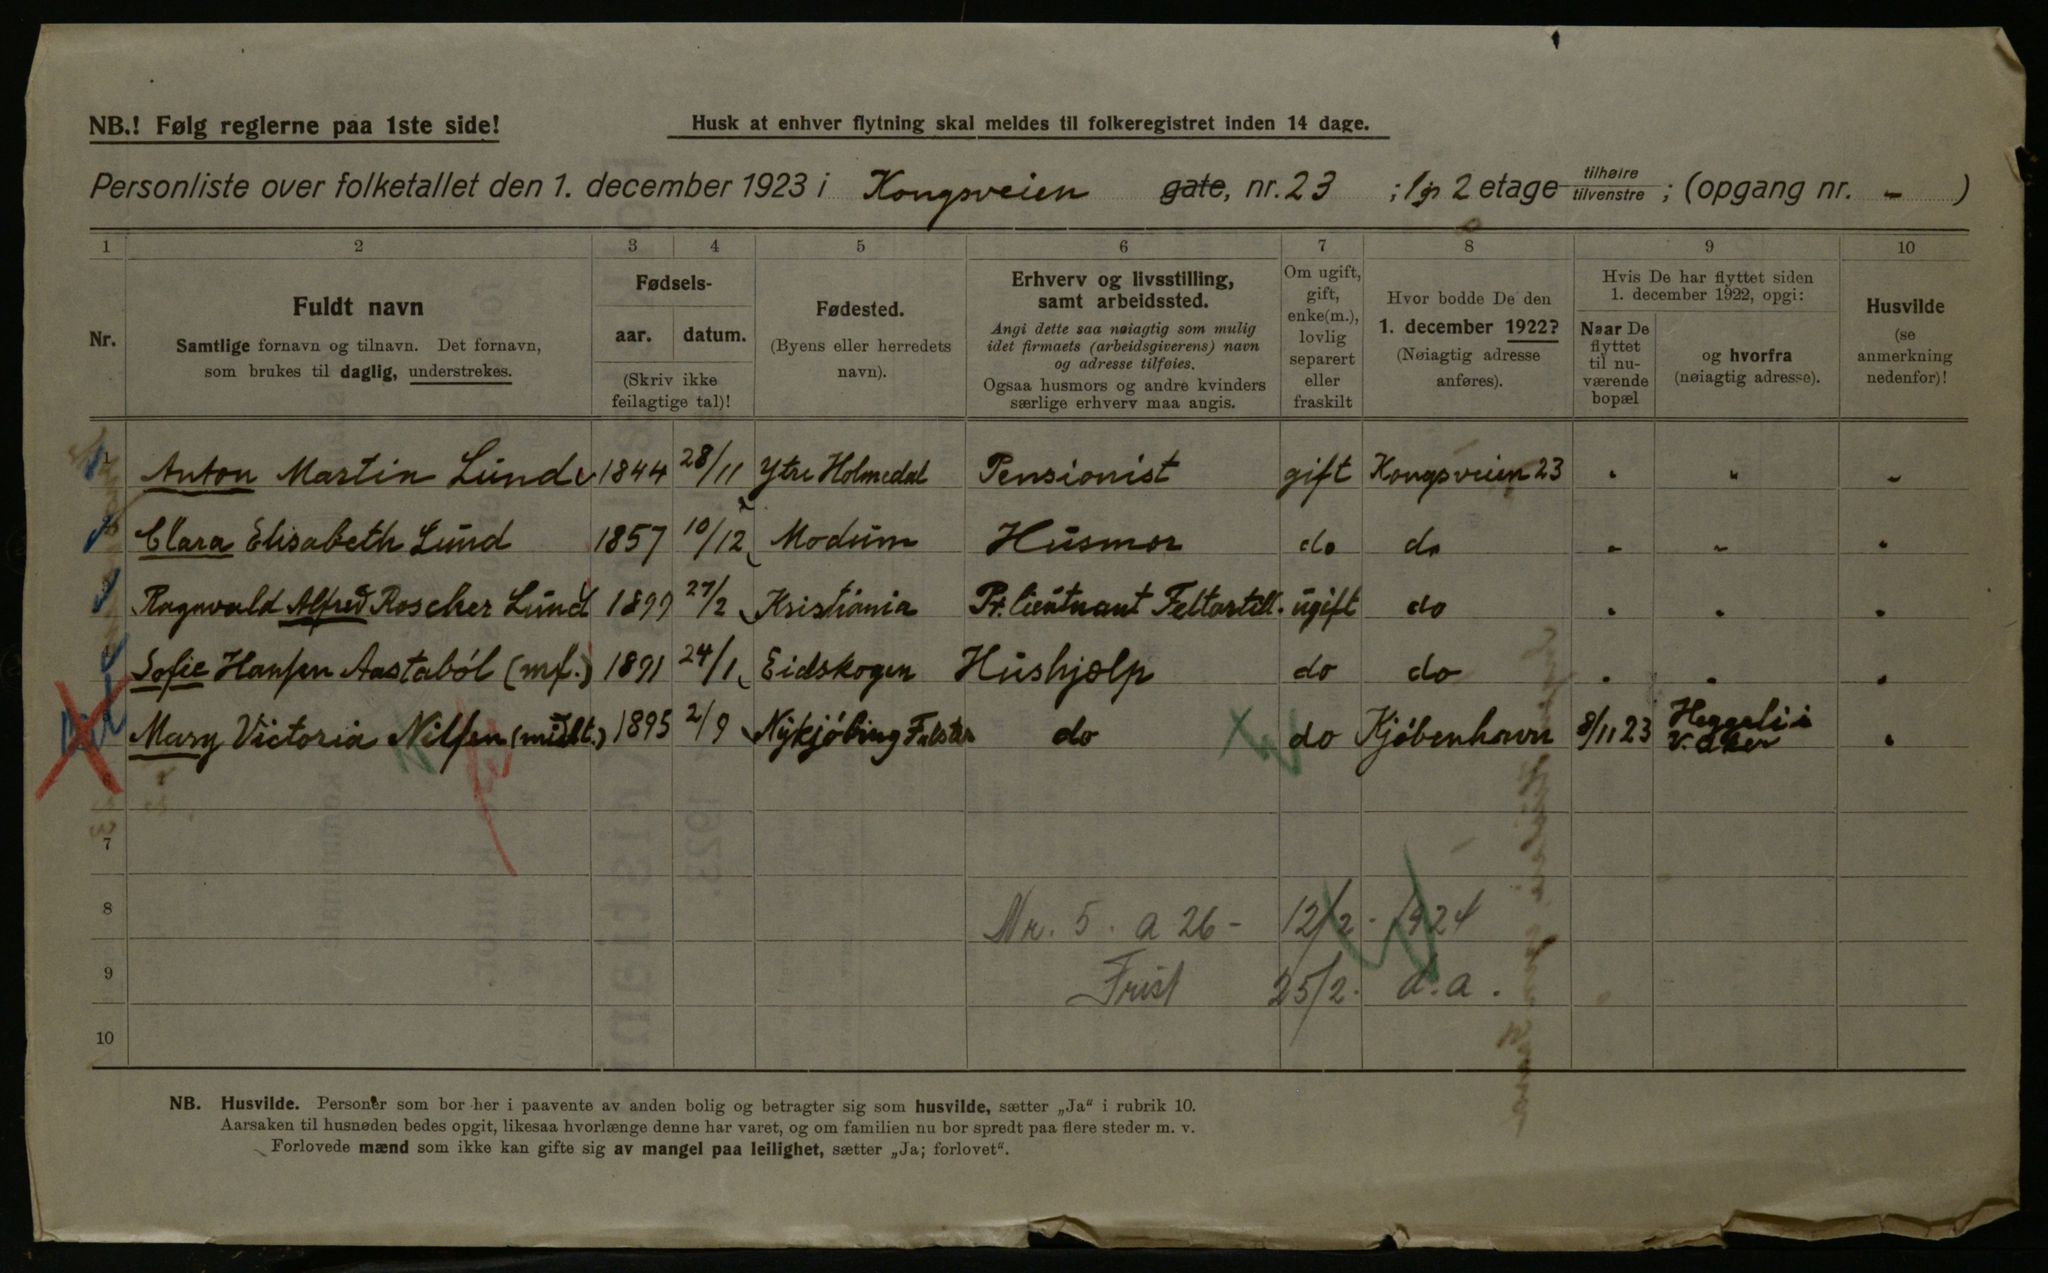 NB.! Følg reglerne paa 1ste side!
Husk at enhver flytning skal meldes til folkeregistret inden 14 dage.
Personliste over folketallet den 1. december 1923 i Kongsveien gate, nr. 23 ; 1 2 etage tilhøire tilvenstre ; (opgang nr. - )
1 2 3 4 5 6 7 8 9 10
Nr.
Fuldt navn
Samtlige fornavn og tilnavn. Det fornavn,
som brukes til daglig, understrekes.
Fødsels-
aar. datum.
(Skriv ikke
feilagtige tal)!
Fødested.
(Byens eller herredets
navn).
Erhverv og livsstilling,
samt arbeidssted.
Angi dette saa nøiagtig som mulig
idet firmaets (arbeidsgiverens) navn
og adresse tilføies.
Ogsaa husmors og andre kvinders
særlige erhverv maa angis.
Om ugift,
gift,
enke(m.),
lovlig
separert
eller
fraskilt
Hvor bodde De den
1. december 1922?
(Nøiagtig adresse
anføres).
Hvis De har flyttet siden
1. december 1922, opgi:
Naar De
flyttet
til nu-
værende
bopæl
og hvorfra
(nøiagtig adresse).
Husvilde
(se
anmerkning
nedenfor)!
Anton Martin Lund 1844 28/11 Ytre Holmedal Pensionist gift Kongsveien 23 " " "
Clara Elisabeth Lund 1857 10/12 Modum Husmor do do " " "
Ragnvald Alfred Roscher Lund 1899 27/2 Kristiania Pr. lieutnant Feltartill. ugift do " " "
Sofie Hansen Aastaból (mf.) 1891 24/1 Eidskogen Hushjælp do do " " "
Mary Victoria Nilsen (midlt.) 1895 2/9 Nýkjóbing Falster do do Kjóbenhavn 8/11 23 Heggeli i
V. Aker "
7
8 Nr. 5. a 26 - 12/2 - 1924
9 Frist 25/2. d.a.
10
NB. Husvilde. Personer som bor her i paavente av anden bolig og betragter sig som husvilde, sætter „Ja“ i rubrik 10.
Aarsaken til husnøden bedes opgit, likesaa hvorlænge denne har varet, og om familien nu bor spredt paa flere steder m. v.
Forlovede mænd som ikke kan gifte sig av mangel paa leilighet, sætter „Ja; forlovet“.